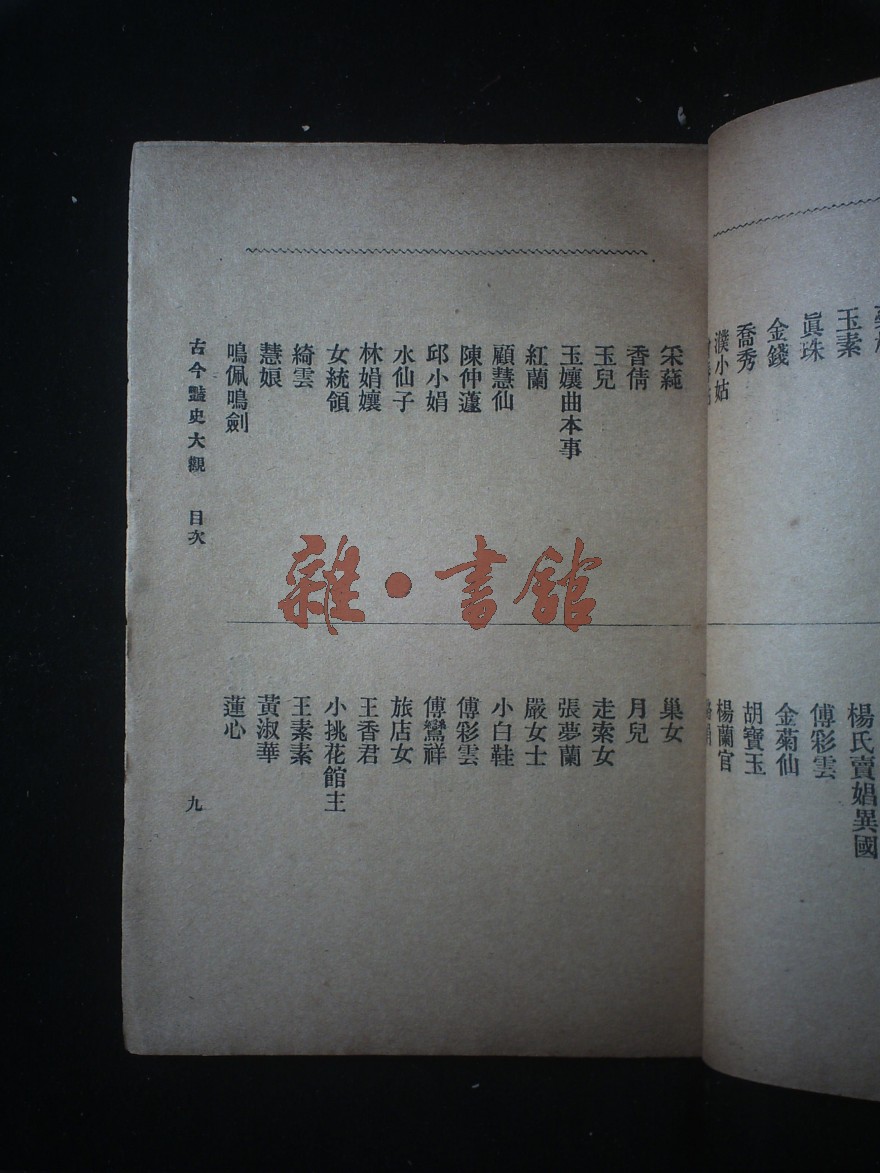 玉素
眞珠
金錢
喬秀
濮小姑
楊氏賣娼異國
傅彩雲
金菊仙
胡寶玉
楊蘭官
采蒓
香倩
玉兒
玉孃曲本事
紅蘭
顧慧仙
陳仲蘧
邱小娟
水仙子
林娟孃
女統領
綺雲
慧娘
鳴佩鳴劍
巢女
月兒
走索女
張夢蘭
嚴女士
小白鞋
傅彩雲
傅鸞祥
旅店女
王香君
小挑花館主
王素素
黃淑華
蓮心
古今豔史大觀 目次
九
雜·書館